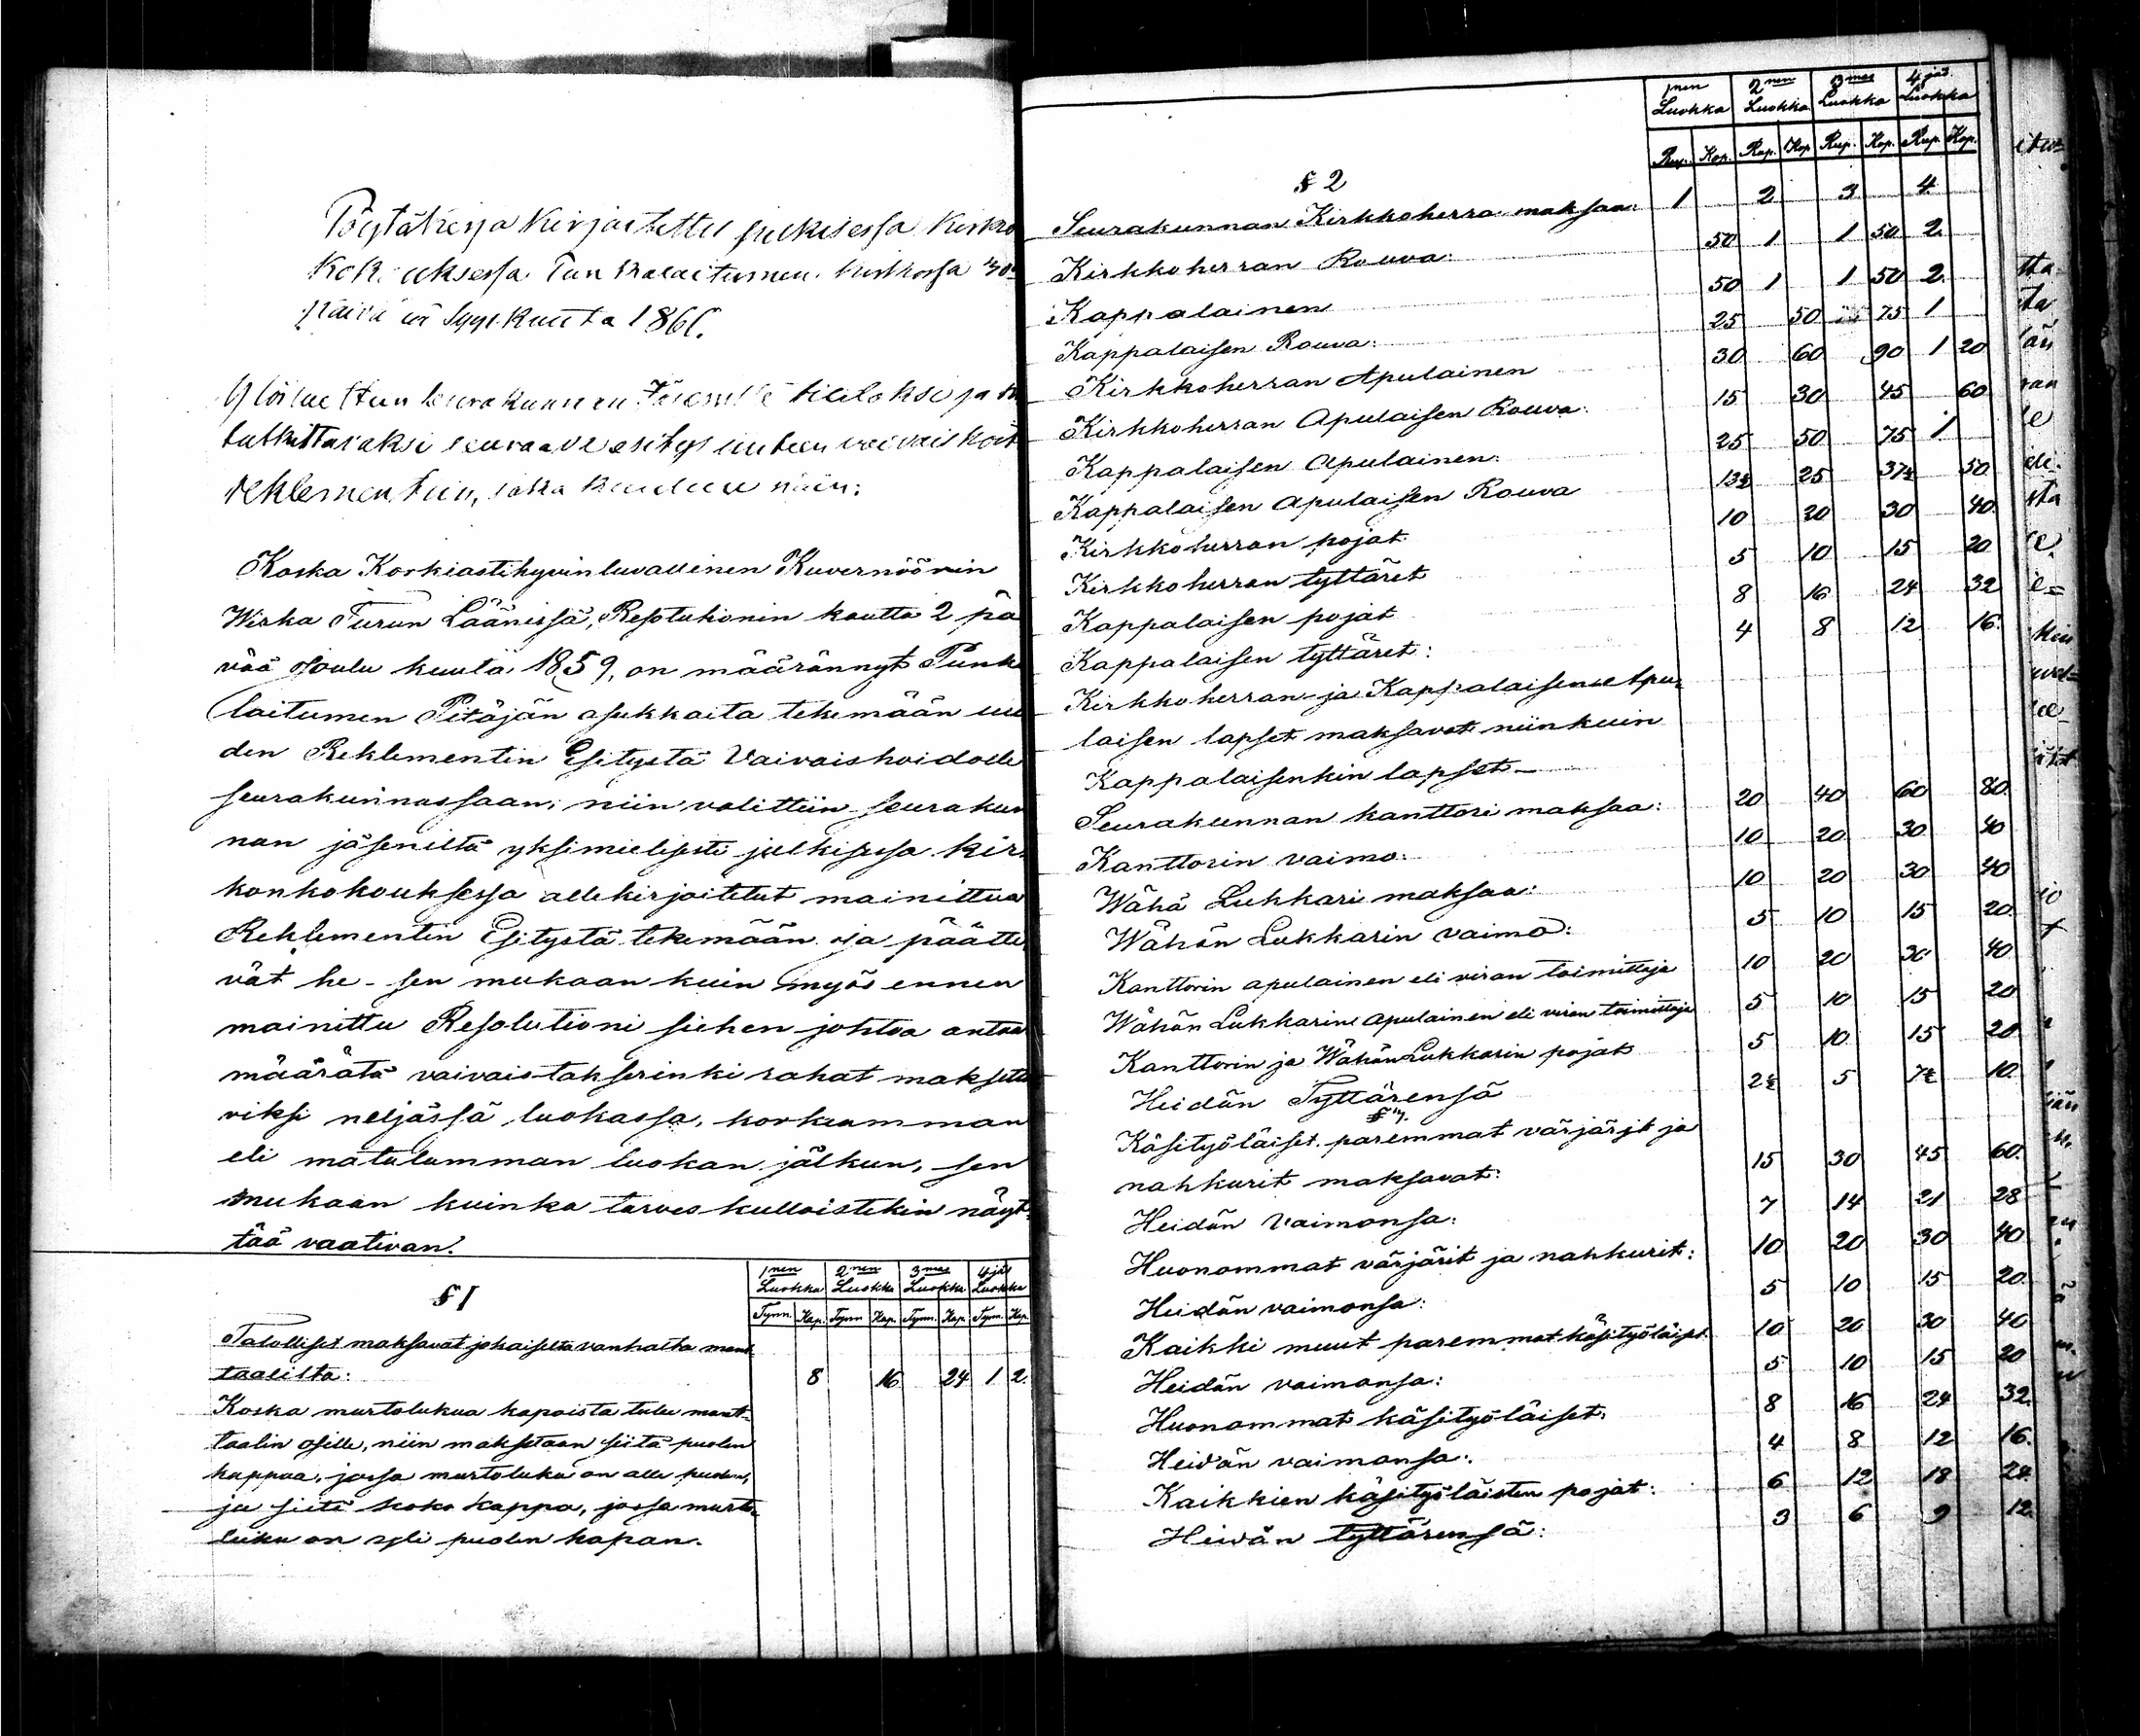 Pöytäkirja kirjoitettu julkisessa kirkon
kokouksessa Punkalaitumen kirkossa 30
päivänä Syyskuuta 186
1) luettiin seurakunnan jäsenille tiedoksi ja
tutkittavaksi seuraava esitys uuteen vaivaishoito
reklementiin, joka kuuluu näin:
Koska Korkiastihyvinluvallinen Kuvernöörin
Wirka Turun Läänissä, Resolutionin kautta 2 päi
vää Joulu kuuta 1859, on määrännyt Punka
laitumen Pitäjän asukkaita tekemään uu
den Reklementin Esitystä Vaivaishoidolle
seurakunnassaan; niin valittiin seurakun
nan jäseniltä yksimielisesti julkisessa kir
konkokouksessa allekirjoitetut mainittua
Reklementin Esitystä tekemään ja päätti
vät he - sen mukaan kuin myös ennen
mainittu Resolutioni siehen johtoa antaa
määrätä vaivaistakserinki rahat maksetta
viksi neljässä luokassa, korkeamman
eli matalamman luokan jälkeen, sen
mukaan kuinka tarves kulloistekin näyt-
tää vaativan.
§ 1
1nen Luokka 2nen Luokka 3mas Luokka 4jäs Luokka
Tynn. Kap. Tynn Kap. Tynn. Kap. Tynn. Kap.
Talolliset maksavat jokaiselta vanhalta mant-
taalilta: 8 16 24 1 2.
Koska murtolukua kapoista tulee mant-
taalin osille, niin maksetaan siitä puolen
kappaa, jossa murtoluku on alle puolen,
ja siitä koko kappa, jossa murto-
luku on yli puolen kapan.
1nen Luokka 2nen Luokka 3mas Luokka 4jäs Luokka
Rup. Kop. Rup. Kop Rup. Kop. Rup. Kop.
§ 2
Seurakunnan Kirkkoherra maksaa: 1 2 3 4
Kirkkoherran Rouva: 50 1 1 50 2
Kappalainen 50 1 1 50 2
Kappalaisen Rouva: 25 50 75 1
Kirkkoherran Apulainen 30 60 90 1 20
Kirkkoherran Apulaisen Rouva: 15 30 45 60
Kappalaisen Apulainen: 25 50 75 1
Kappalaisen Apulaisen Rouva 13½ 25 37½ 50
Kirkkoherran pojat 10 20 30 40.
Kirkkoherran tyttäret 5 10 15 20
Kappalaisen pojat 8 16 24 32
Kappalaisen tyttäret: 4 8 12 16.
Kirkkoherran- ja Kappalaisen Apu-
laisen lapset maksavat niinkuin
Kappalaisenkin lapset -
Seurakunnan kanttori maksaa: 20 40 60 80.
Kanttorin vaimo: 10 20 30 40
Wähä Lukkari maksaa: 10 20 30 40
Wähän Lukkarin vaimo: 5 10 15 20.
Kanttorin apulainen eli viran toimittaja 10 20 30 40
Wähän Lukkarin apulainen eli viran toimittaja 5 10 15 20
Kanttorin ja Wähän Lukkarin pojat 5 10 15 20
Heidän Tyttärensä 2½ 5 7½ 10.
Käsityöläiset. paremmat värjärit ja
nahkurit maksavat: 15 30 45 60.
Heidän Vaimonsa: 7 14 21 28
Huonommat värjärit ja nahkurit: 10 20 30 40
Heidän vaimonsa: 5 10 15 20.
Kaikki muut paremmat käsityöläiset 10 20 30 40
Heidän vaimonsa: 5 10 15 20
Huonommat käsityöläiset: 8 16 24 32.
Heidän vaimonsa: 4 8 12 16.
Kaikkien käsityöläisten pojat: 6 12 18 24
Heidän tyttärensä: 3 6 9 12.